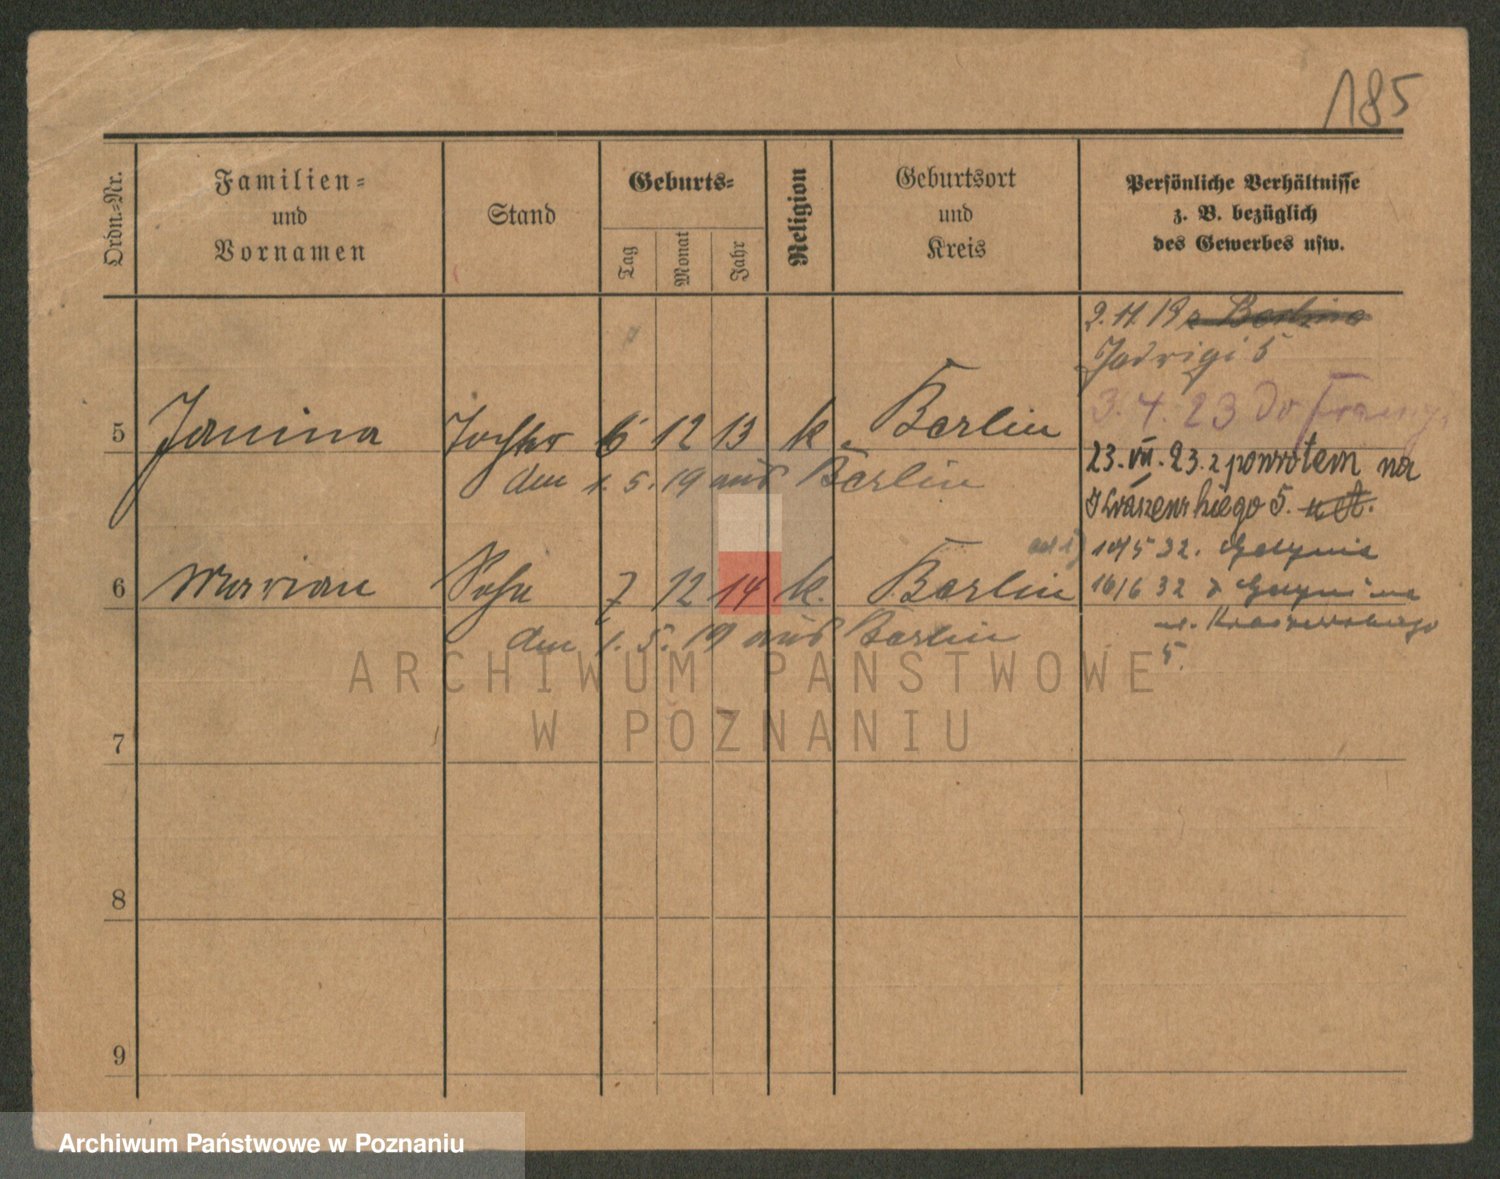 185
Ordn.-Nr.
Familien-
und
Vornamen
Stand
Geburts-
Tag
Monat
Jahr
Religion
Geburtsort
und
Kreis
Persönliche Verhältnisse
z. B. bezüglich
des Gewerbes usw.
2. 11 19 z Berlina
Jadwigi 5
3. 4. 23 do
5 Janina Tochter 6 12 13 k. Berlin
den 1. 5. 19 aus Berlin
23. VII. 23. z powrotem na
Kraszewskiego 5.
6 Marian Sohn 7 12 14 k. Berlin
den 1. 5. 19 aus Berlin
10/5 32. Gdynia
16/6 32 z Gdyni na
ul. Kraszewskiego
5.
7
8
9
ARCHIWUM PAŃSTWOWE
W POZNANIU
Archiwum Państwowe w Poznaniu